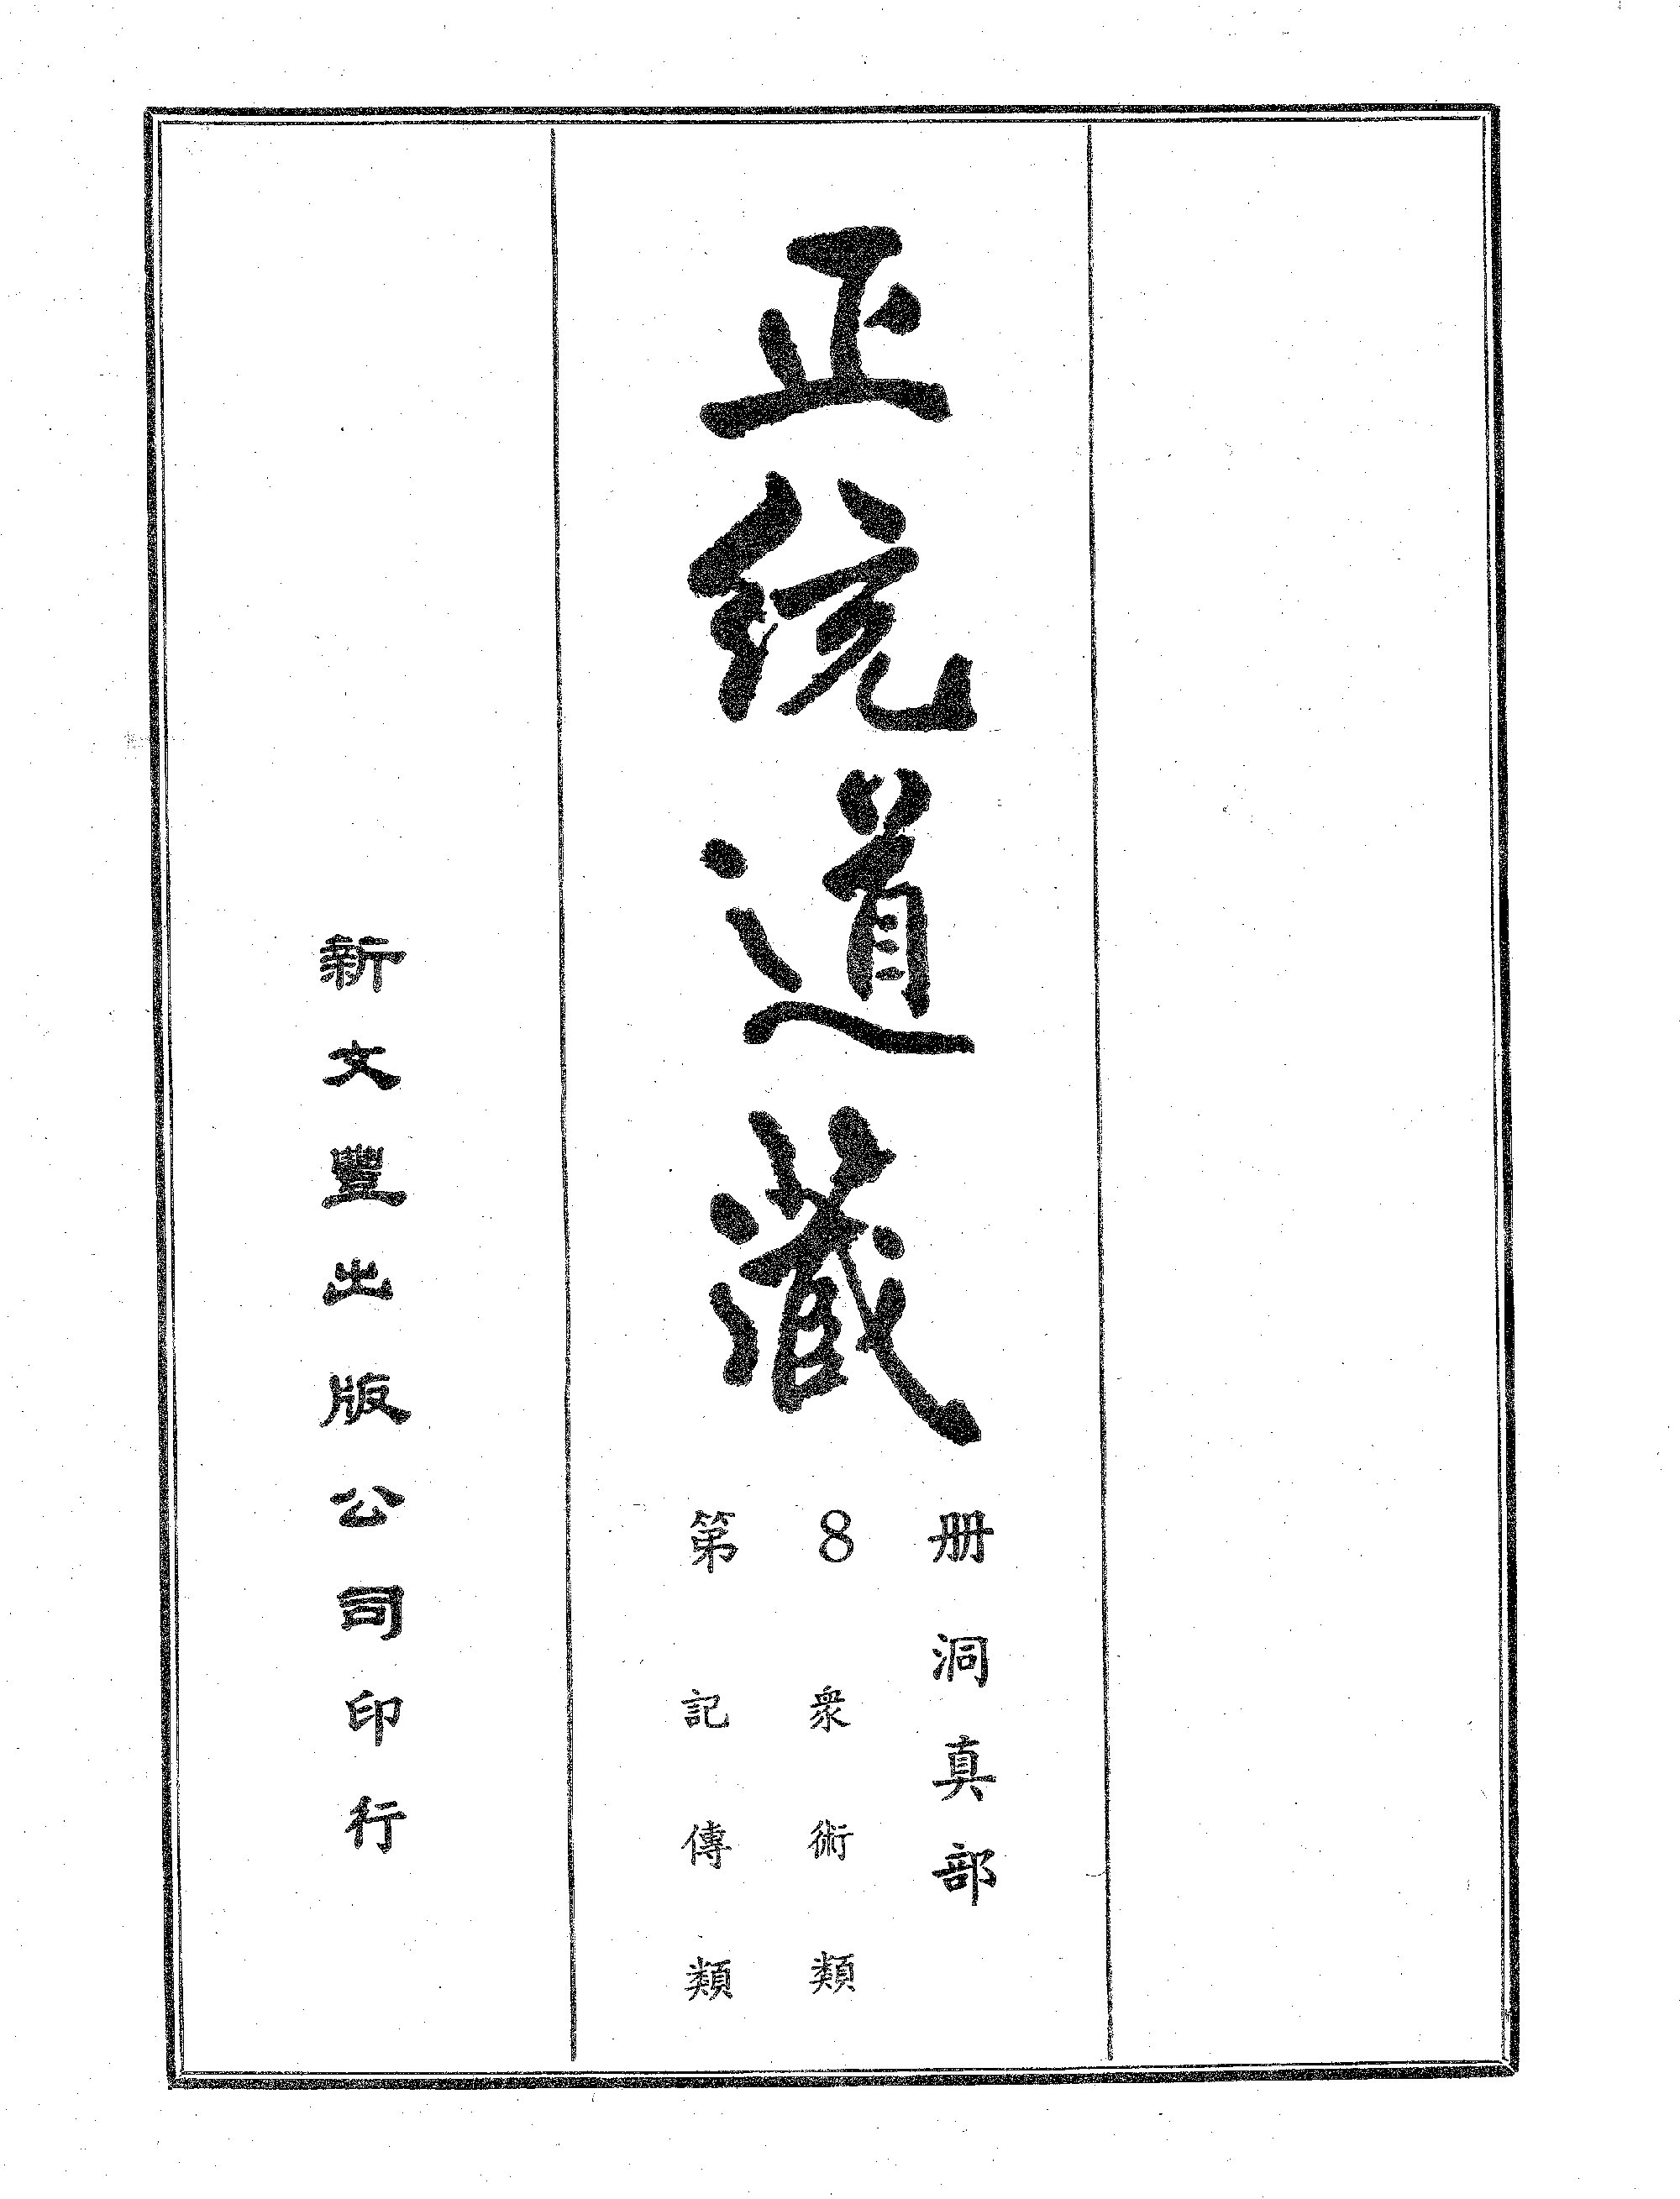 正統道藏
第8册
洞真部
衆術類
記傳類
新文豐出版公司印行